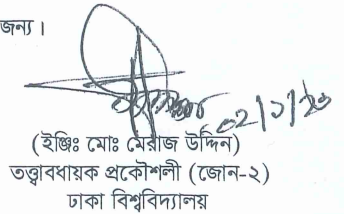 জন্য ।
০২/১/২০
(ইঞ্জিঃ মোঃ মেরাজ উদ্দিন)
তত্ত্বাবধায়ক প্রকৌশলী (জোন-২)
ঢাকা বিশ্ববিদ্যালয়